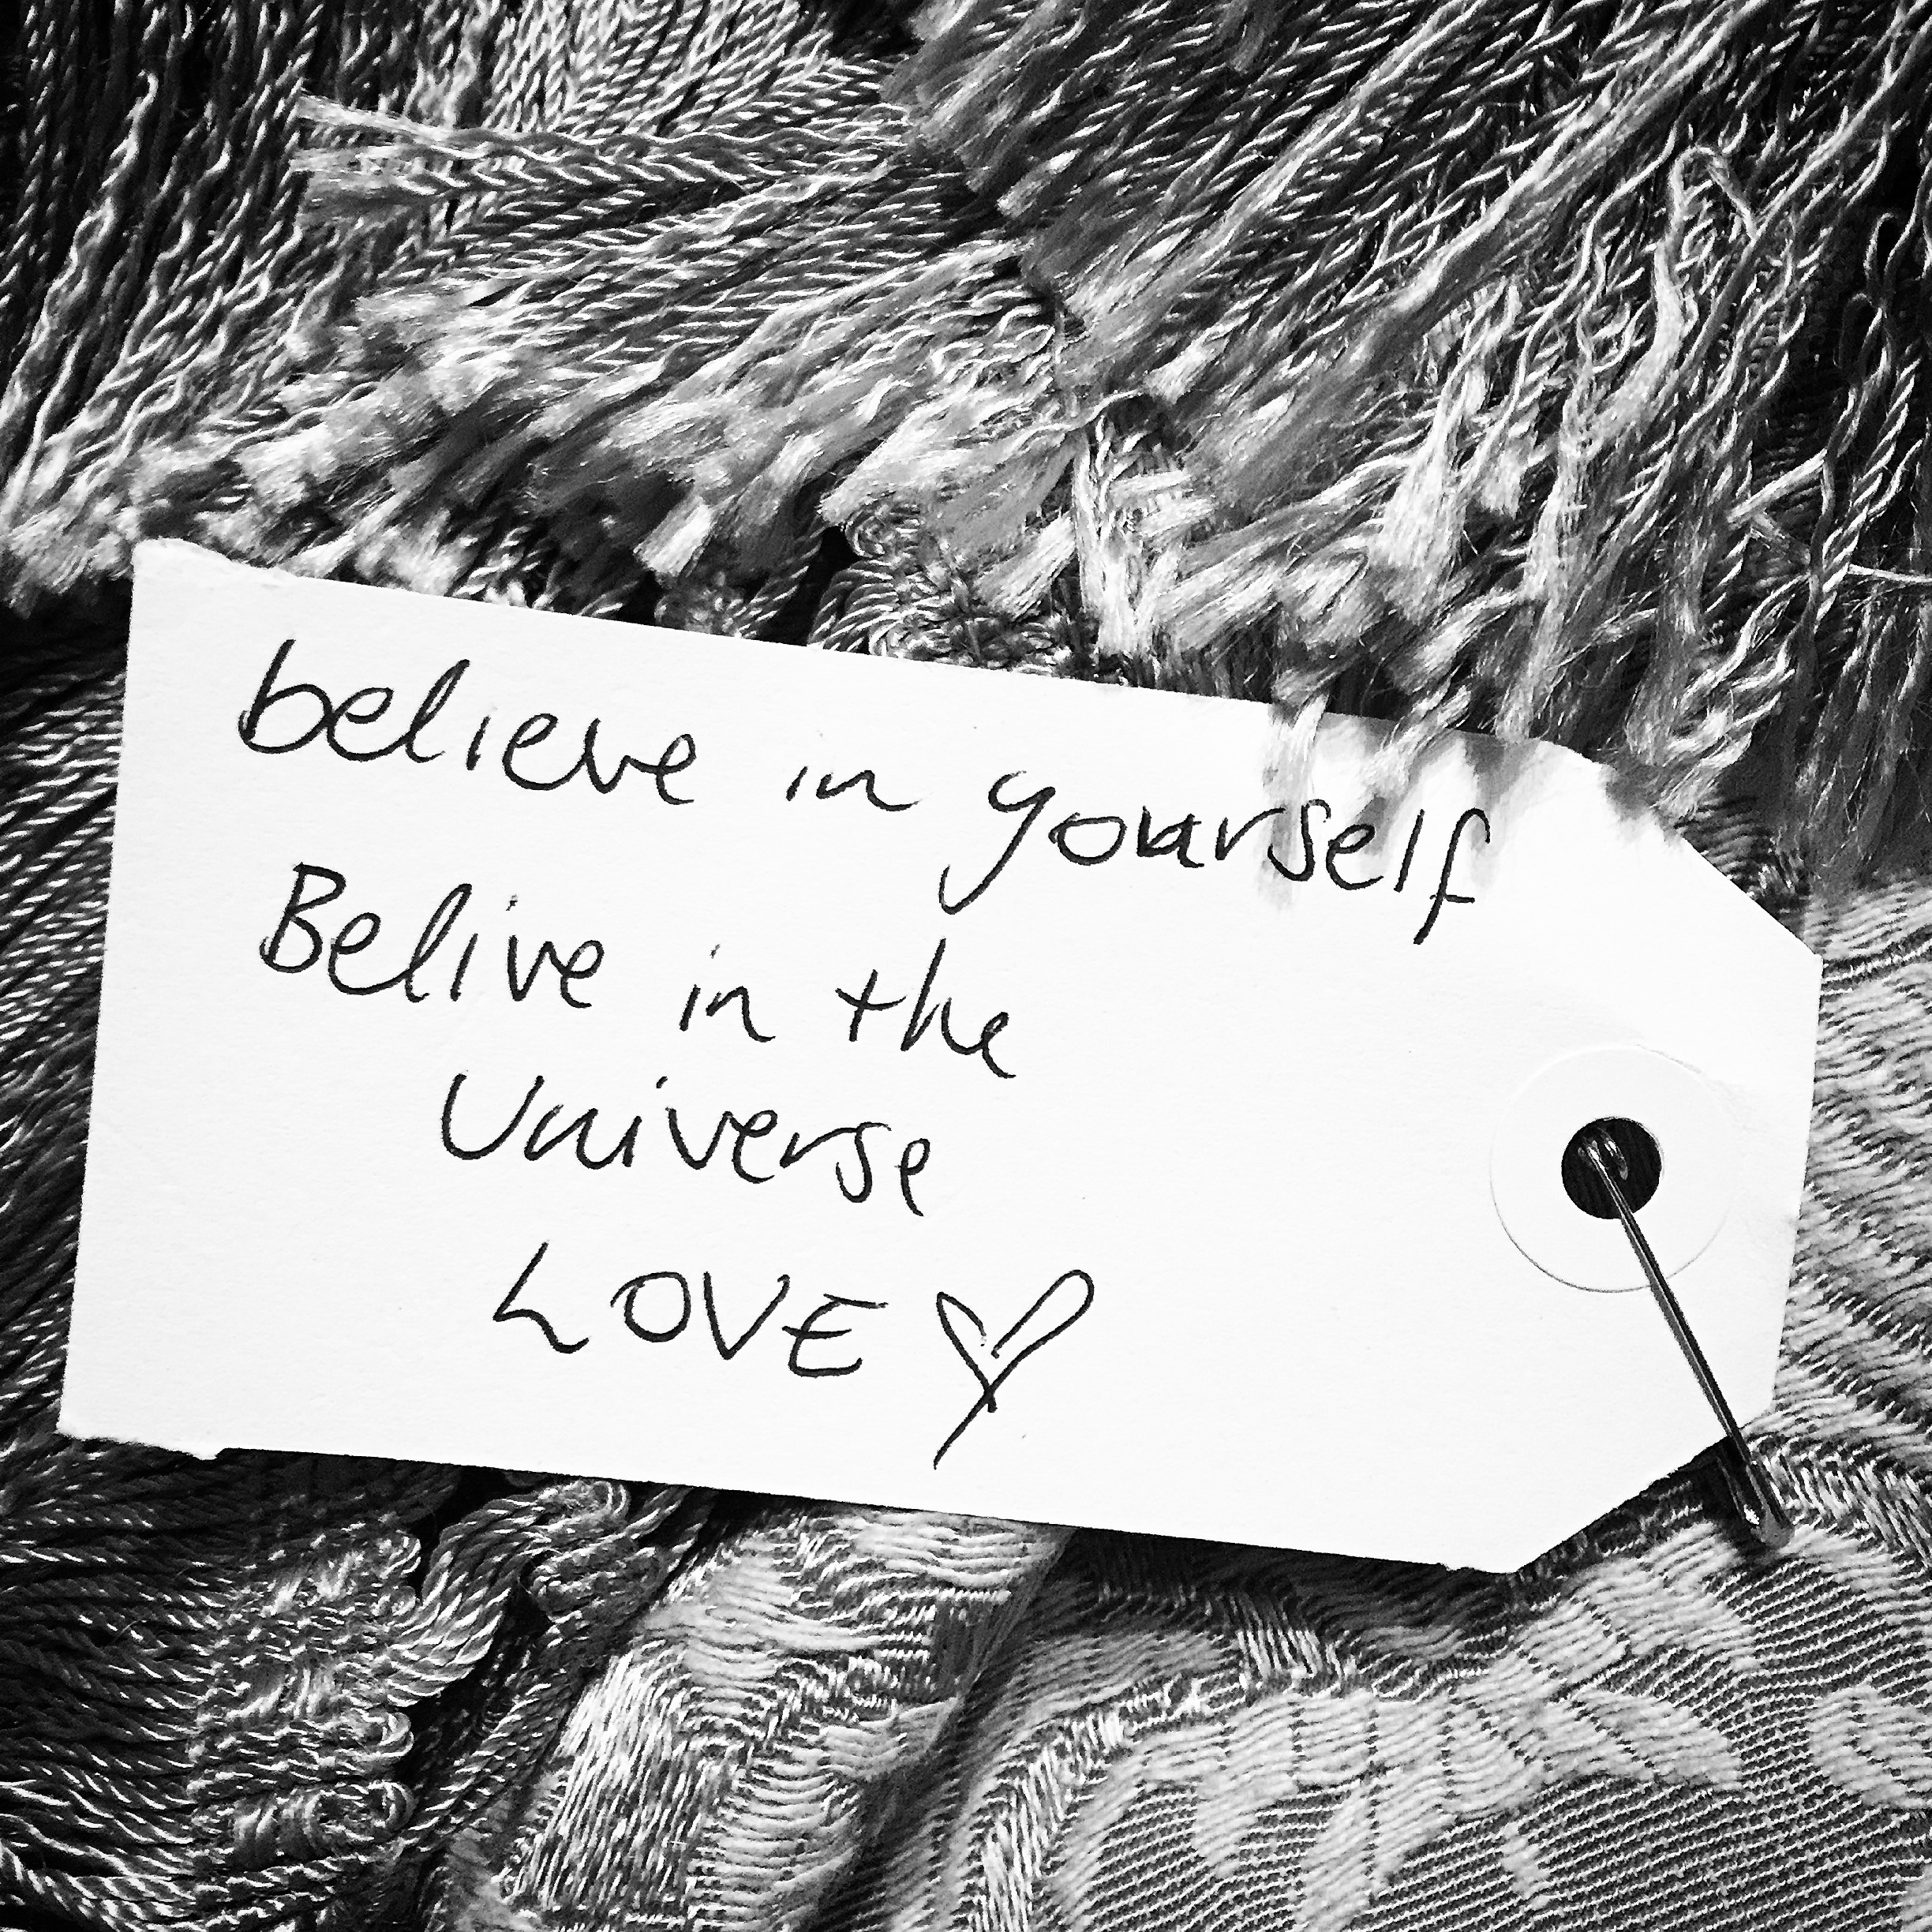 believe in yourself
Belive in the
Universe
LOVE ♡